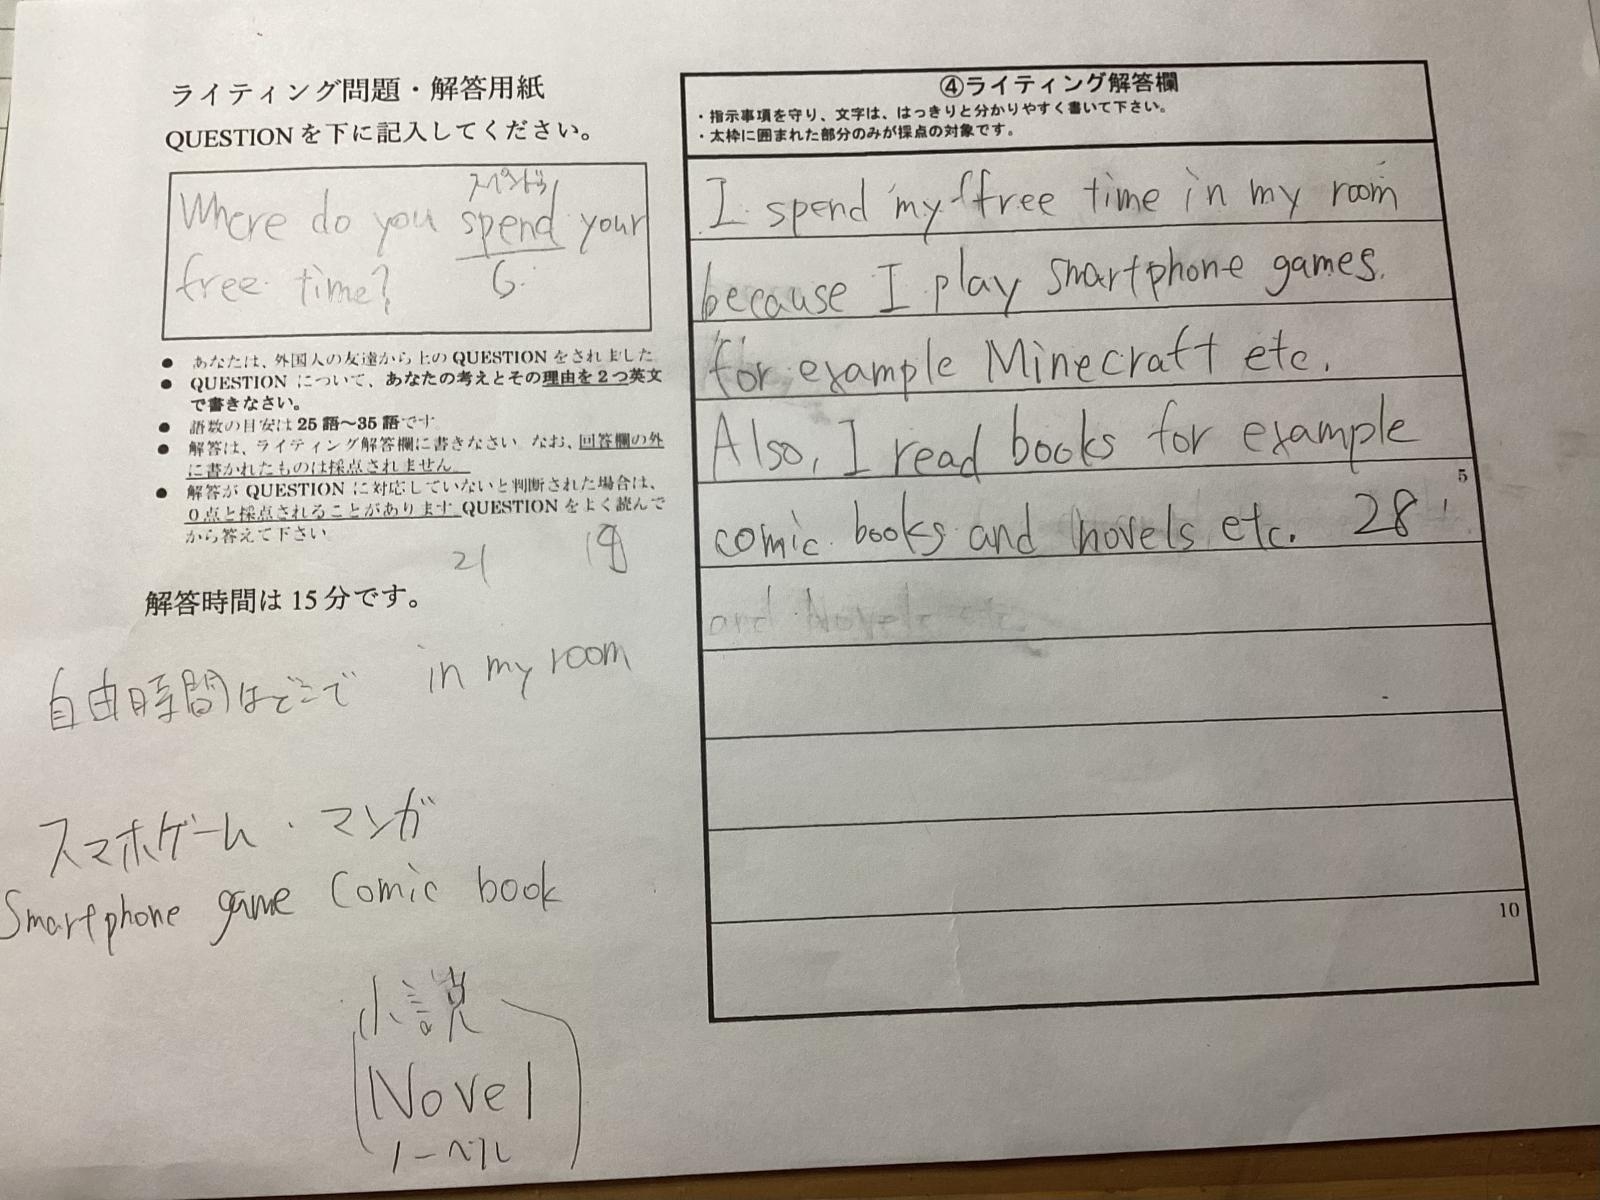 ライティング問題・解答用紙
QUESTIONを下に記入してください。
スペンドゥ
Where do you spend your
free time?
6.
● あなたは、外国人の友達から上の QUESTION をされました
● QUESTION について、あなたの考えとその理由を2つ英文
で書きなさい。
● 語数の目安は 25 語～35 語です
● 解答は、ライティング解答欄に書きなさい なお、回答欄の外
に書かれたものは採点されません
● 解答が QUESTION に対応していないと判断された場合は、
0点と採点されることがあります QUESTION をよく読んで
から答えて下さい
21
解答時間は 15 分です。
自由時間はどこで in my room
スマホゲーム・マンガ
Smartphone game Comic book
小説
Novel
ノーベル
④ライティング解答欄
・指示事項を守り、文字は、はっきりと分かりやすく書いて下さい。
・太枠に囲まれた部分のみが採点の対象です。
I spend my free time in my room
because I play smartphone games.
for example Minecraft etc.
Also, I read books for example
5
comic books and novels etc. 28
and Novels etc.
10